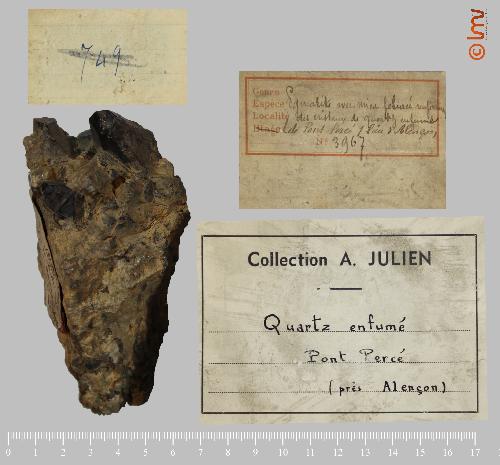 © lmv
749
Genre
Espèce Pegmatite avec mica
Localité des cristaux de quartz enfumé
Etage de Pont Percé près d'Alençon
N° 3967
Collection A. JULIEN
Quartz enfumé
Pont Percé
(près Alençon)
0 1 2 3 4 5 6 7 8 9 10 11 12 13 14 15 16 17